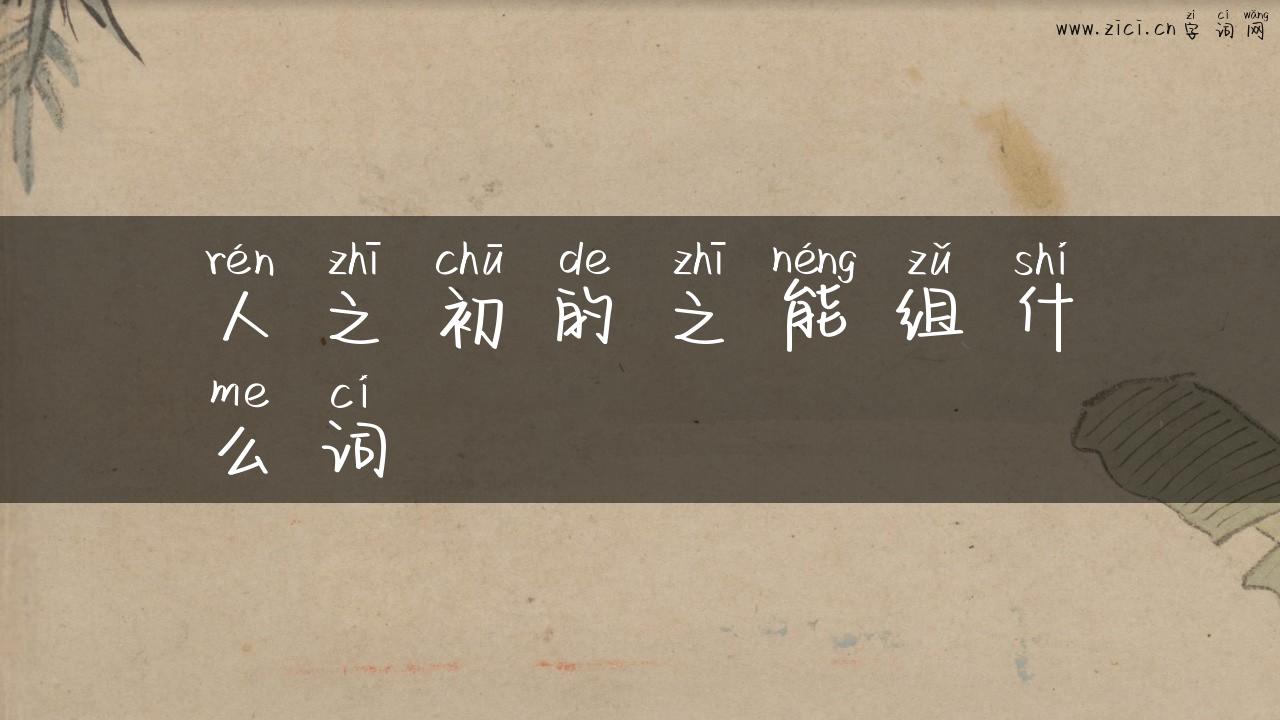 zì cí wǎng
www.zici.cn 字词网
rén zhī chū de zhī néng zǔ shí
人之初的之能组什
me cí
么词